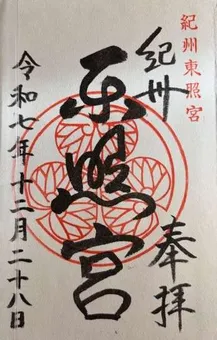 紀州東照宮
奉拝
紀州
東照宮
令和七年十二月二十八日